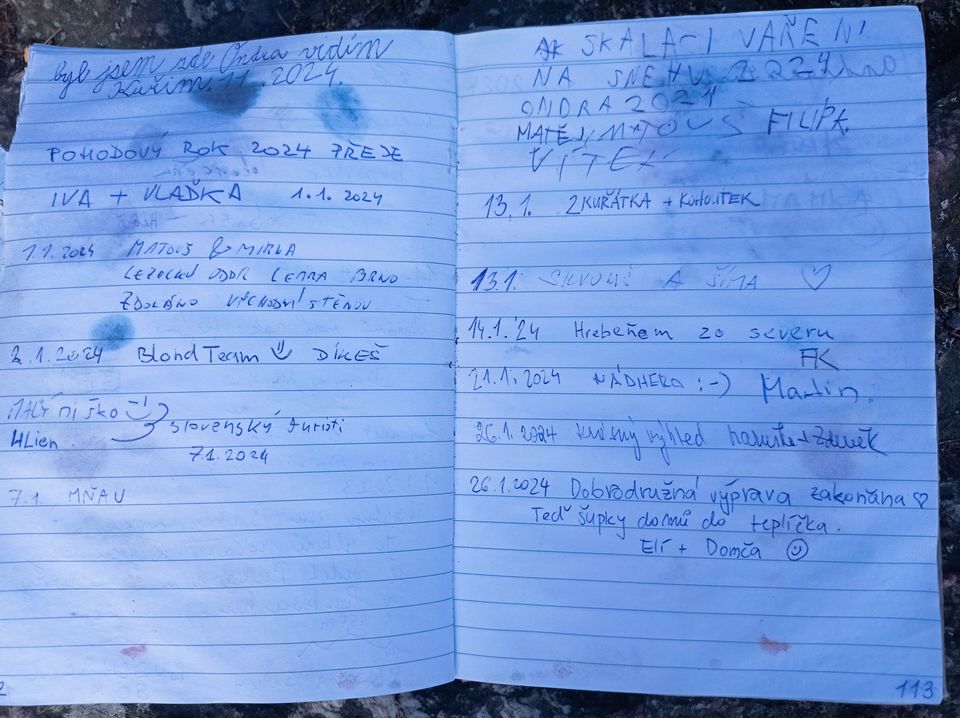 byl jsem zde Ondra vidím
Kuřim 1.1.2024.
POHODOVÝ ROK 2024 PŘEJE
IVA + VLAĎKA 1.1.2024
1.1.2024 MATOUŠ & MIRLA
LEZECKÝ ODDÍL BRNO
ZDOLÁNO VÝCHODNÍ STĚNOU
2.1.2024 BlondTeam DÍKEŠ
slovenský turisti
7.1.2024
7.1 MŇAU
SKALÁCI VAŘENÍ
NA SNEHU
ONDRA 2024
MATĚJ MATOUŠ FILIP K.
VÍTEK
13.1. 2 KUŘÁTKA + KOHOUTEK
13.1. A ŠÍMA ♡
14.1.'24 Hrebeňom zo severu
FK
21.1.2024 NÁDHERA :-) Martin
26.1.2024 krásný výhled Zdeněk
26.1.2024 Dobrodružná výprava zakončna ♡
Teď šupky domů do teplíčka.
Elí + Domča ☺
113